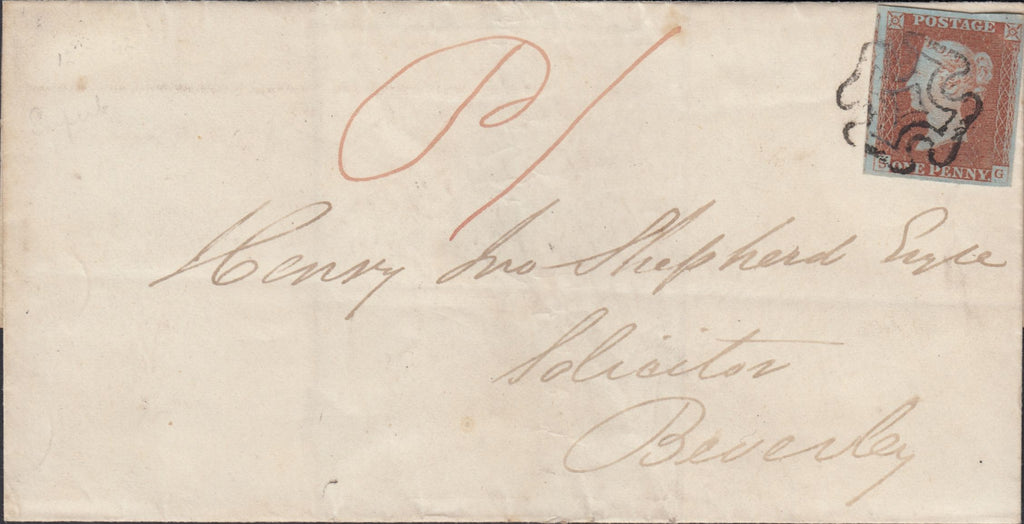 POSTAGE
ONE PENNY.
G
P/
Henry Jno Shepherd Esqre
Solicitor
Beverley